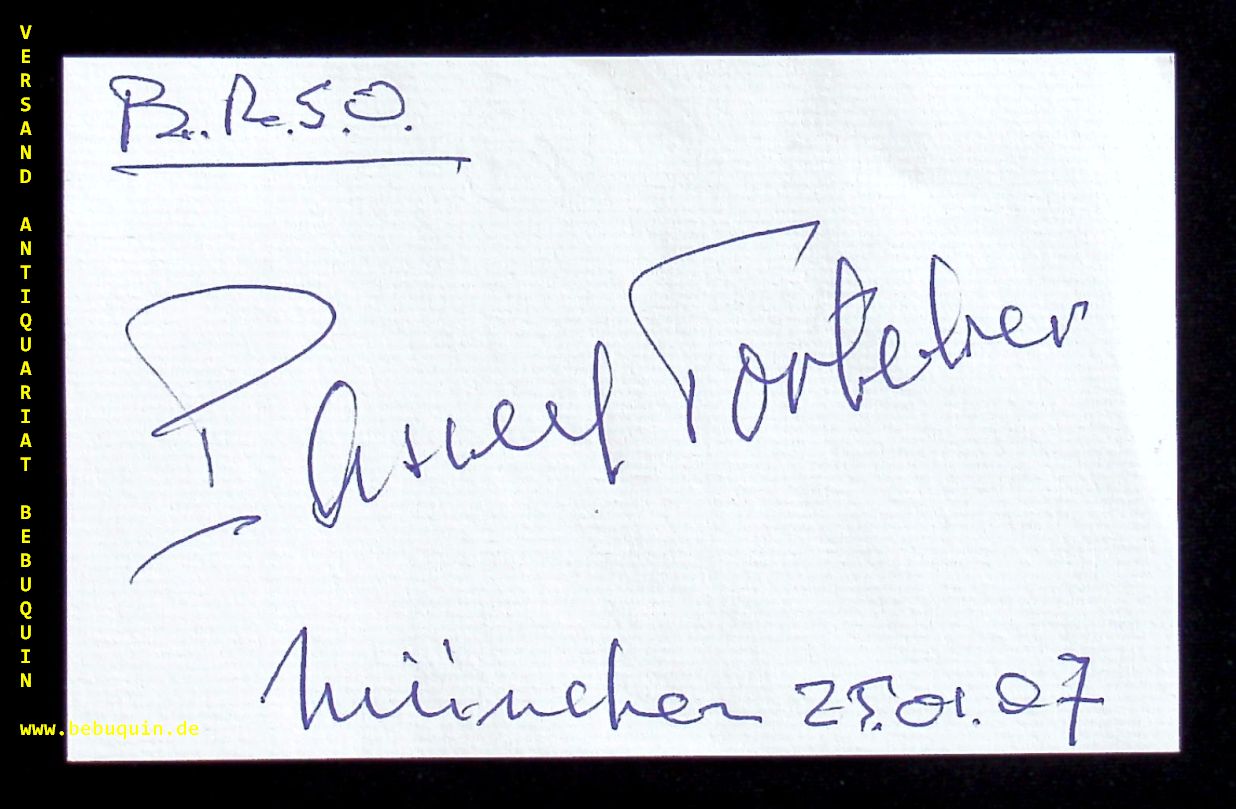 VERSAND ANTIQUARIAT BEBUQUIN
B.R.S.O.
München 25.01.07
www.bebuquin.de